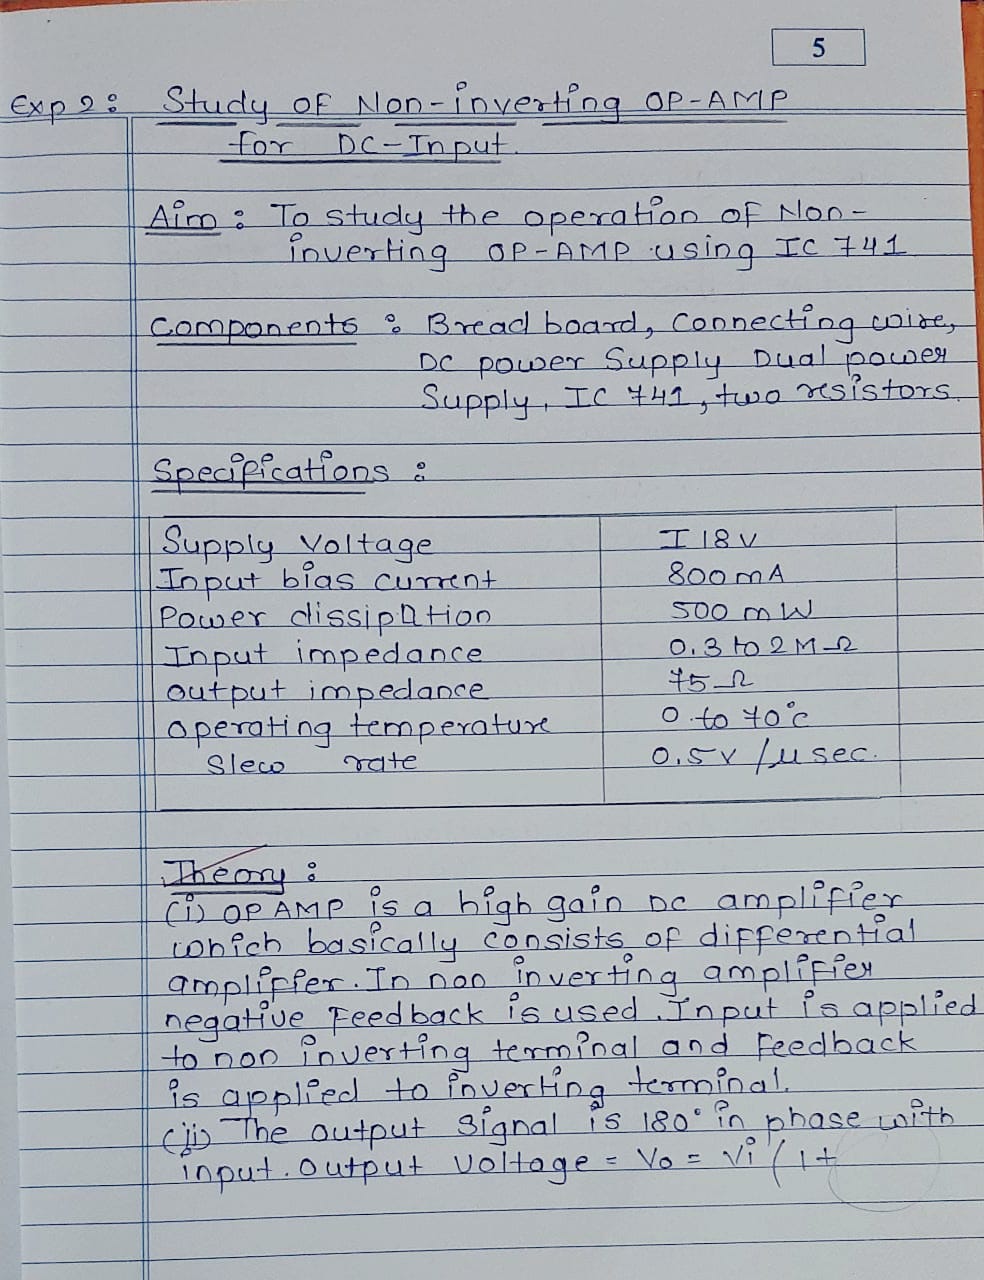 5
Exp 2: Study of Non-inverting OP-AMP
for DC-Input.
Aim: To study the operation of Non-
inverting OP-AMP using IC 741
Components: Bread board, Connecting wire,
DC power Supply Dual power
Supply, IC 741, two resistors.
Specifications:
Supply Voltage I 18V
Input bias current 800mA
Power dissipation 500mW
Input impedance 0.3 to 2M-Ω
output impedance 75-Ω
operating temperature 0 to 70°c
Slew rate 0.5v/μsec.
Theory:
(i) OPAMP is a high gain DC amplifier
which basically consists of differential
amplifier. In non inverting amplifier
negative Feedback is used. Input is applied
to non inverting terminal and Feedback
is applied to inverting terminal.
(ii) The output signal is 180° in phase with
input. output voltage = Vo = Vi (1+